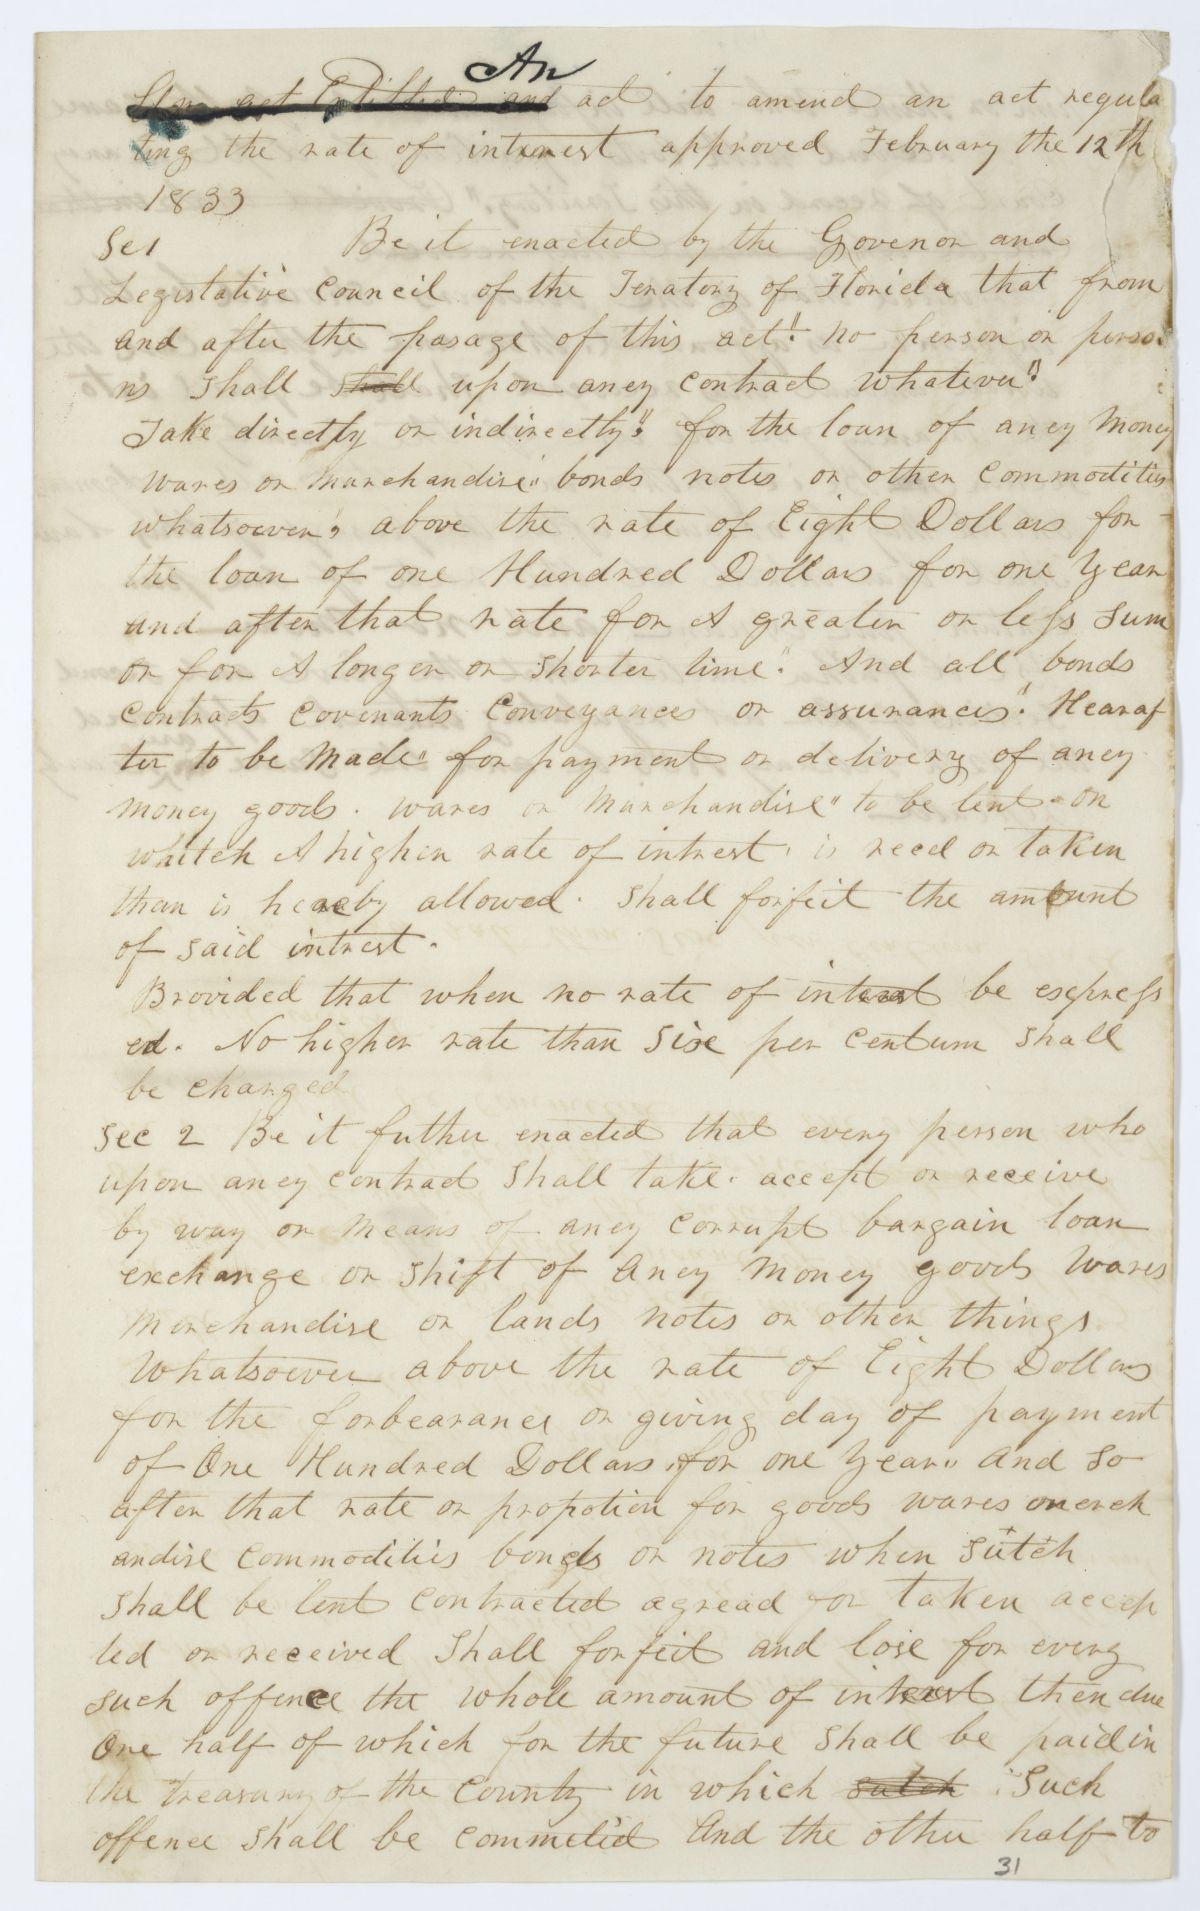 An act Entitled and An act to amend an act regula
ting the rate of interest approved February the 12th
1833
Se 1 Be it enacted by the Govenor and
Legistative Council of the Teratory of Florida that from
and after the pasage of this act" no person or perso
ns shall shall upon aney contract whatever"
Take directly or indirectly" for the loan of aney Money
wares or Marchandise" bonds notes or other Commodities
whatsoever, above the rate of Eight Dollars for
the loan of one Hundred Dollars for one Year
and after that rate for A greater or less Sum
or for A longer or shorter time". And all bonds
contracts Covenants Conveyances or assurances". Hearaf
ter to be Made" for payment or delivery of aney
money goods. wares or Marchandise" to be lent on
whitch A higher rate of intrest is recd or taken
than is hereby allowed. shall forfeit the amount
of said intrest.
Brovided that when no rate of interest be express
ed. No higher rate than Sixe per centum shall
be charged
Sec 2 Be it futher enacted that every person who
upon aney contract shall take. accept or receive
by way or Means of aney Corrupt bargain loan
exchange or shift of aney Money goods Wares
Merchandise or lands notes or other things
Whatsoever above the rate of Eight Dollars
for the forbearance or giving day of payment
of One Hundred Dollars, for one Year" and so
after that rate or propotion for goods wares merch
andise Commodities bonds or notes when sutch
shall be lent contracted agread or taken accep
ted or received shall forfeit and lose for every
such offence the whole amount of interest then due
One half of which for the future shall be paid in
the treasury of the County in which sutch such
offence shall be commetied and the other half to
31